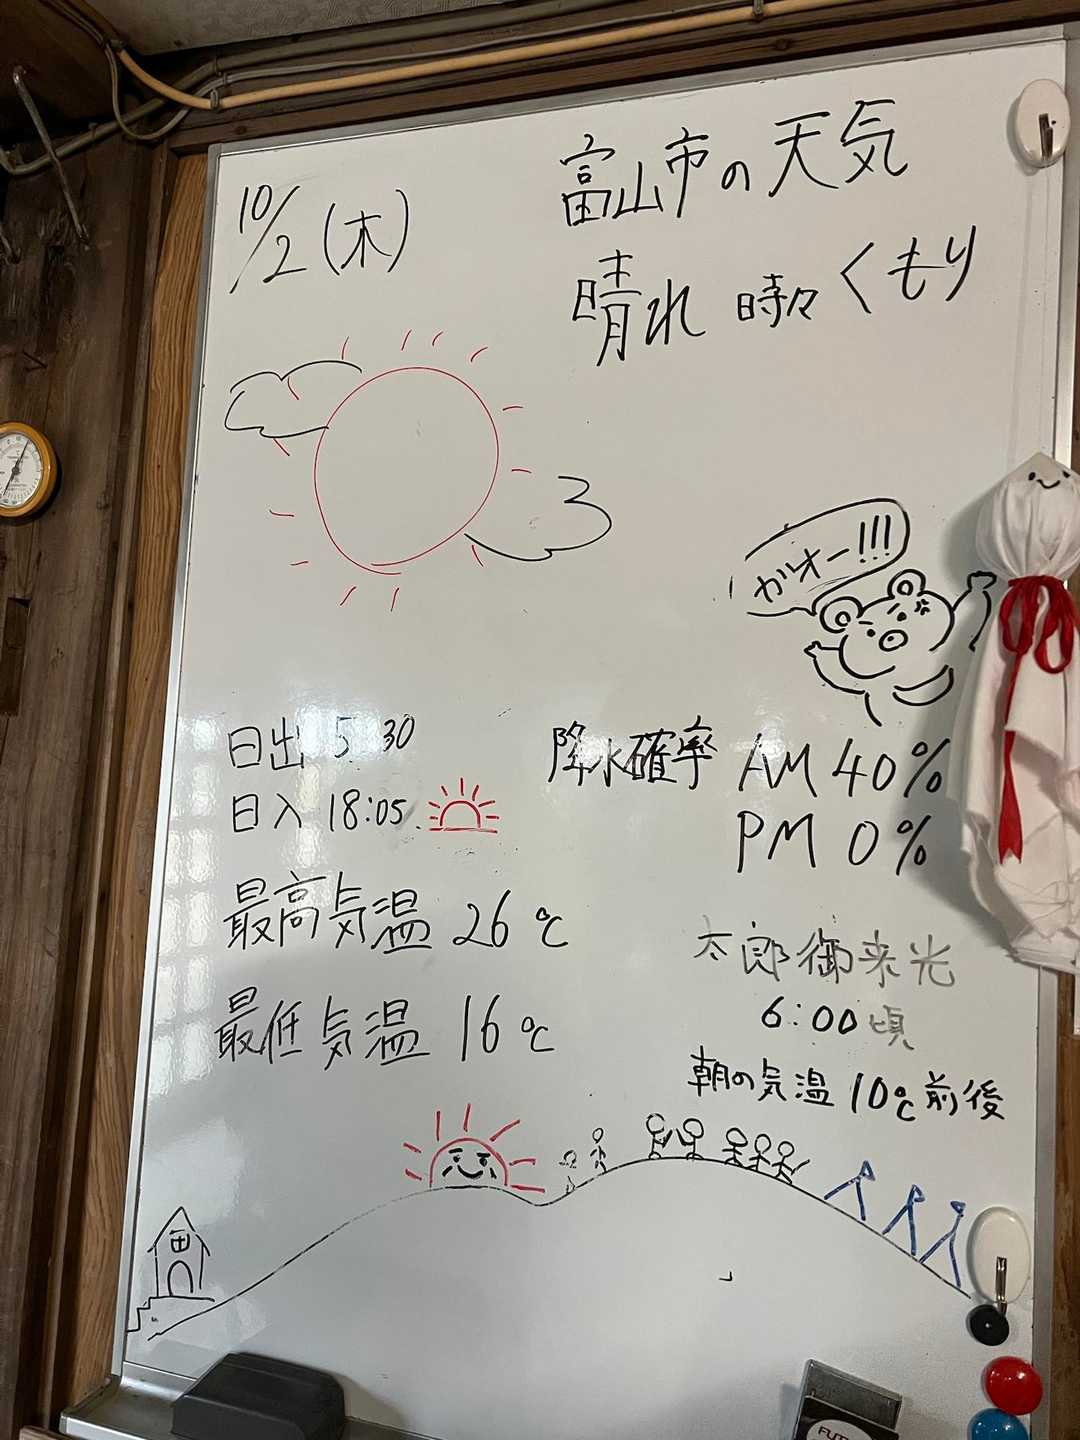 10/2(木)
富山市の天気
晴れ 時々くもり
ガオー!!!
日出 5 30
日入 18:05
降水確率 AM 40%
PM 0%
最高気温 26℃
最低気温 16℃
太郎御来光
6:00頃
朝の気温 10℃前後